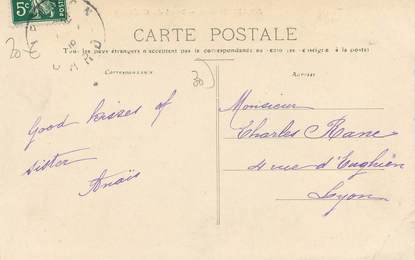 5c
CARTE POSTALE
Tous les pays étrangers n'acceptent pas la correspondance au recto (se renseigner à la poste)
Correspondance
Adresse
20€
20)
Good kisses of
sister
Anaïs
Monsieur
Charles Rane
4 rue d'Enghien
Lyon